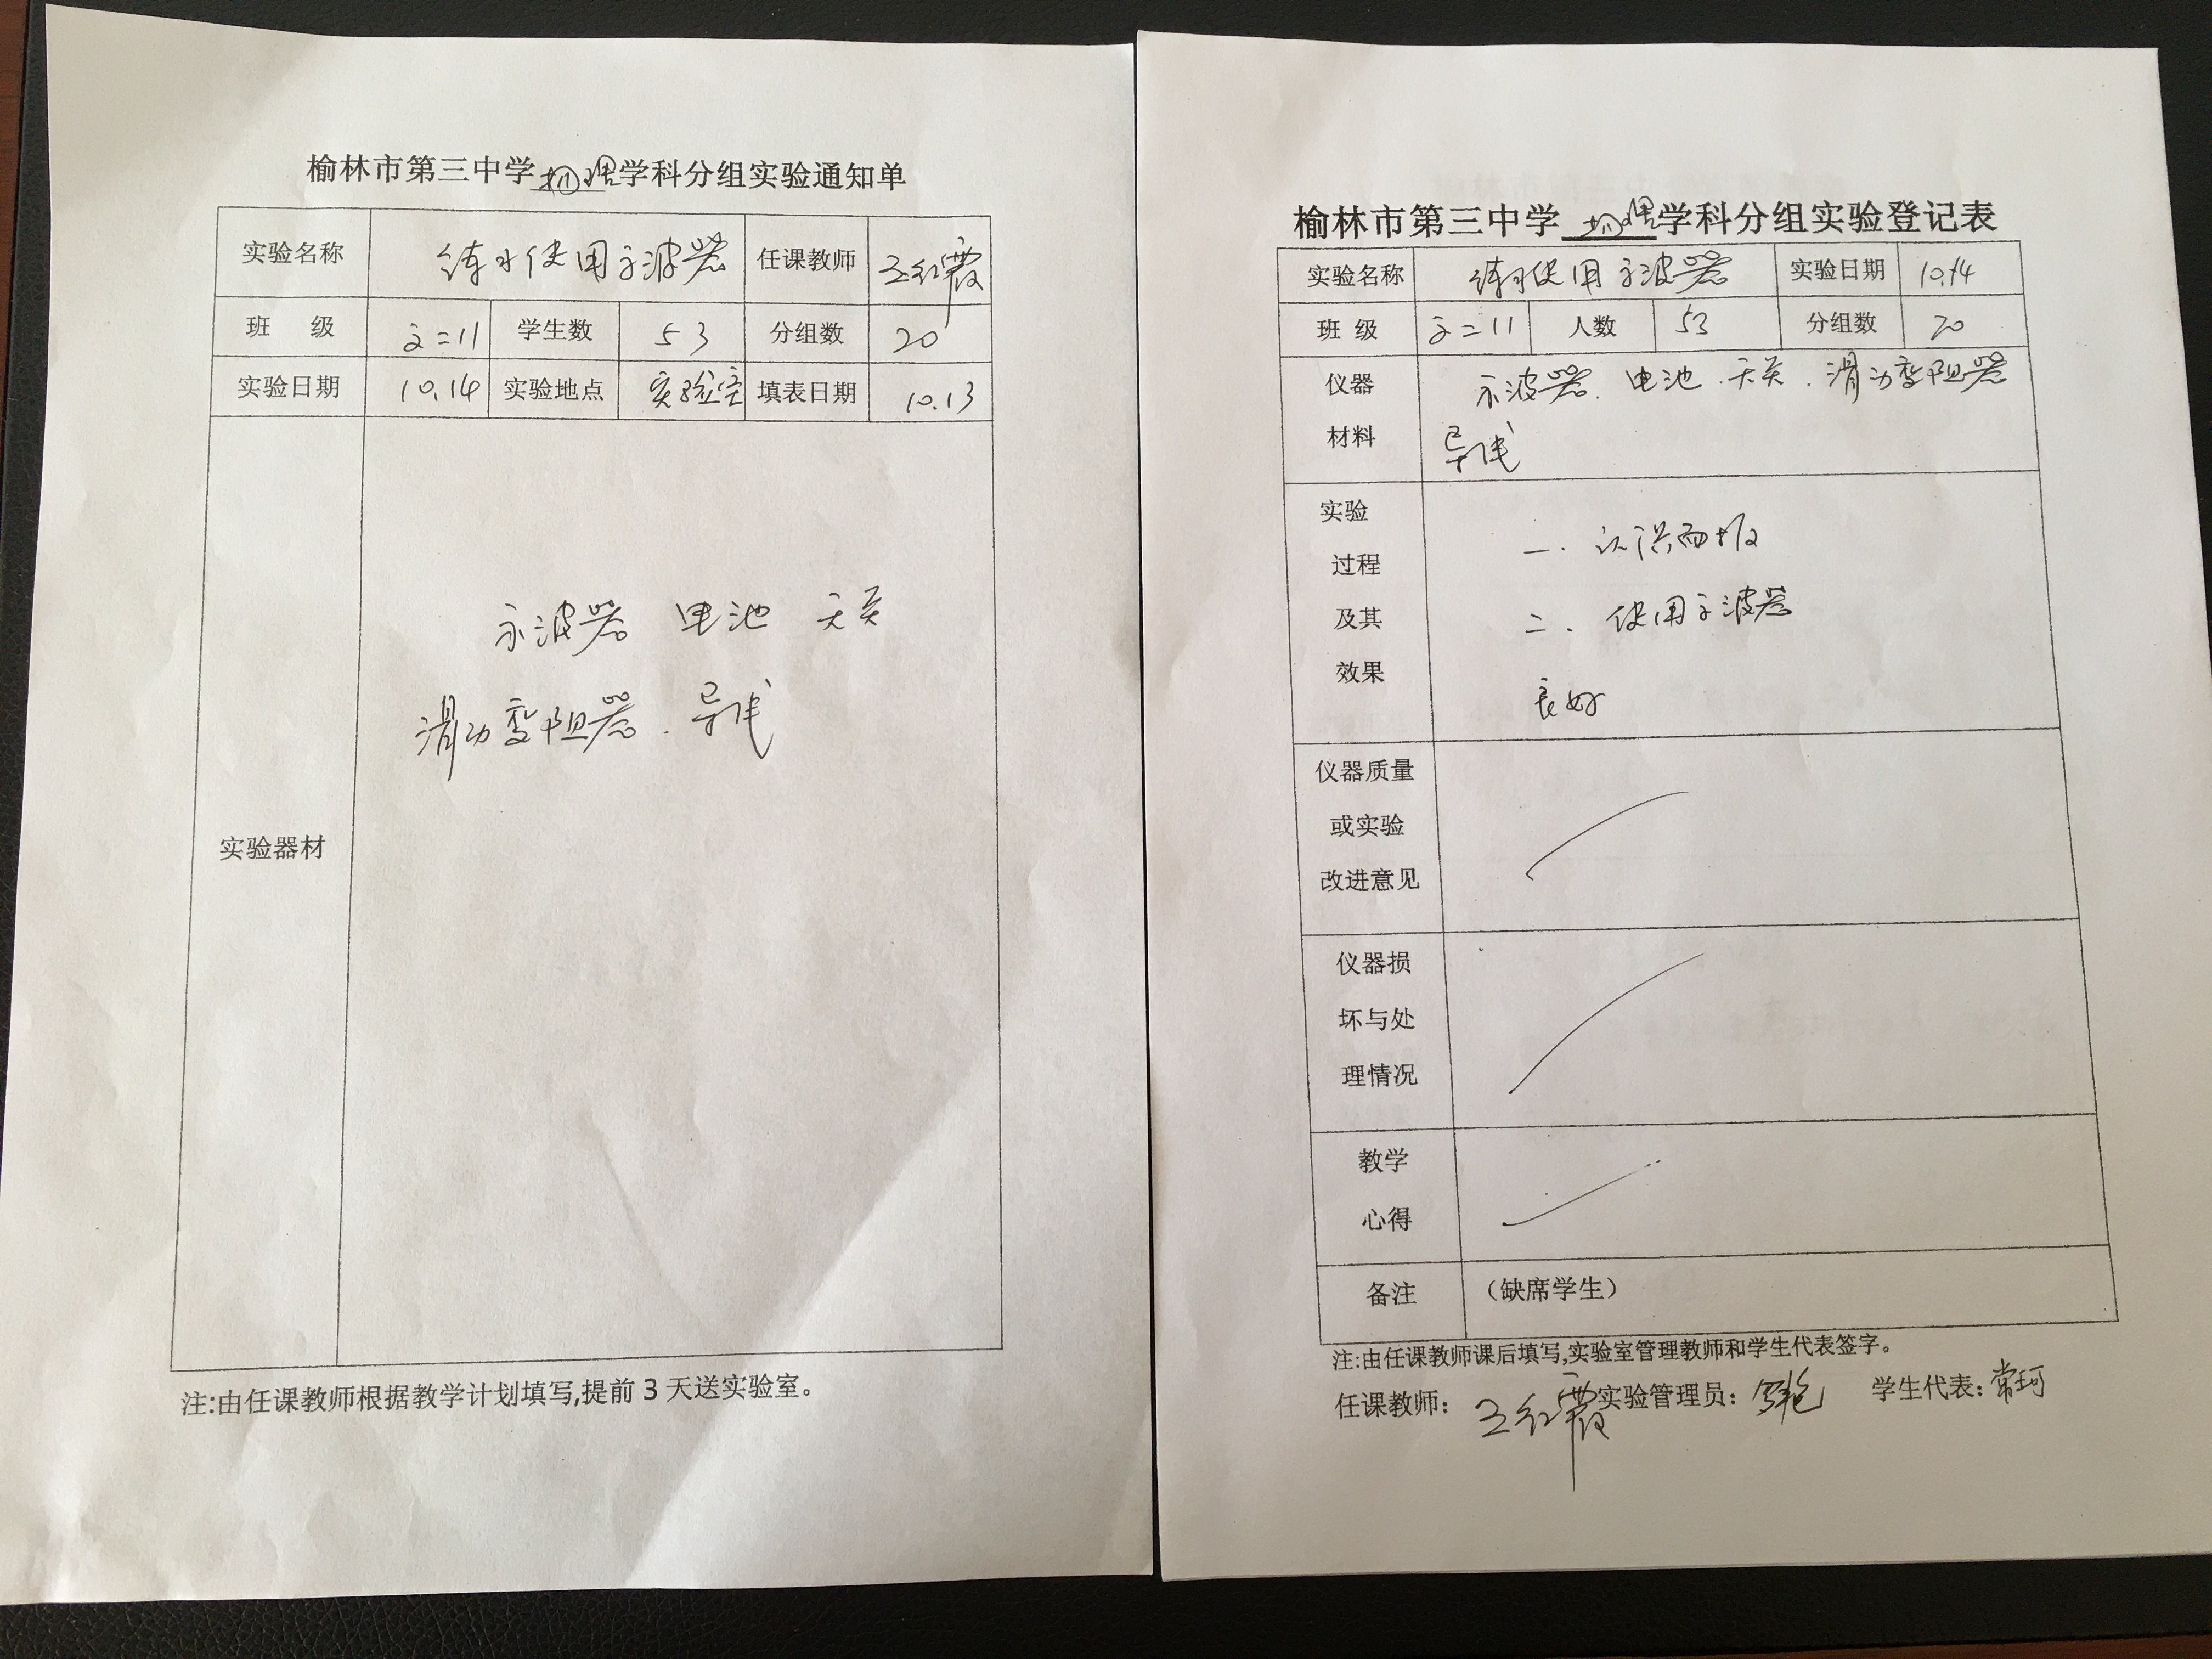 榆林市第三中学物理学科分组实验通知单
实验名称 练习使用示波器 任课教师 王红霞
班 级 高二11 学生数 53 分组数 20
实验日期 10.14 实验地点 实验室 填表日期 10.13
实验器材
示波器 电池 开关
滑动变阻器. 导线
注:由任课教师根据教学计划填写,提前3天送实验室。
榆林市第三中学 物理学科分组实验登记表
实验名称 练习使用示波器 实验日期 10.14
班 级 高二11 人数 53 分组数 20
仪器
材料
示波器. 电池. 开关. 滑动变阻器
导线
实验
过程
及其
效果
一. 认识面板
二. 使用示波器
良好
仪器质量
或实验
改进意见
仪器损
坏与处
理情况
教学
心得
备注 (缺席学生)
注:由任课教师课后填写,实验室管理教师和学生代表签字。
任课教师: 王红霞 实验管理员: 学生代表: 常珂